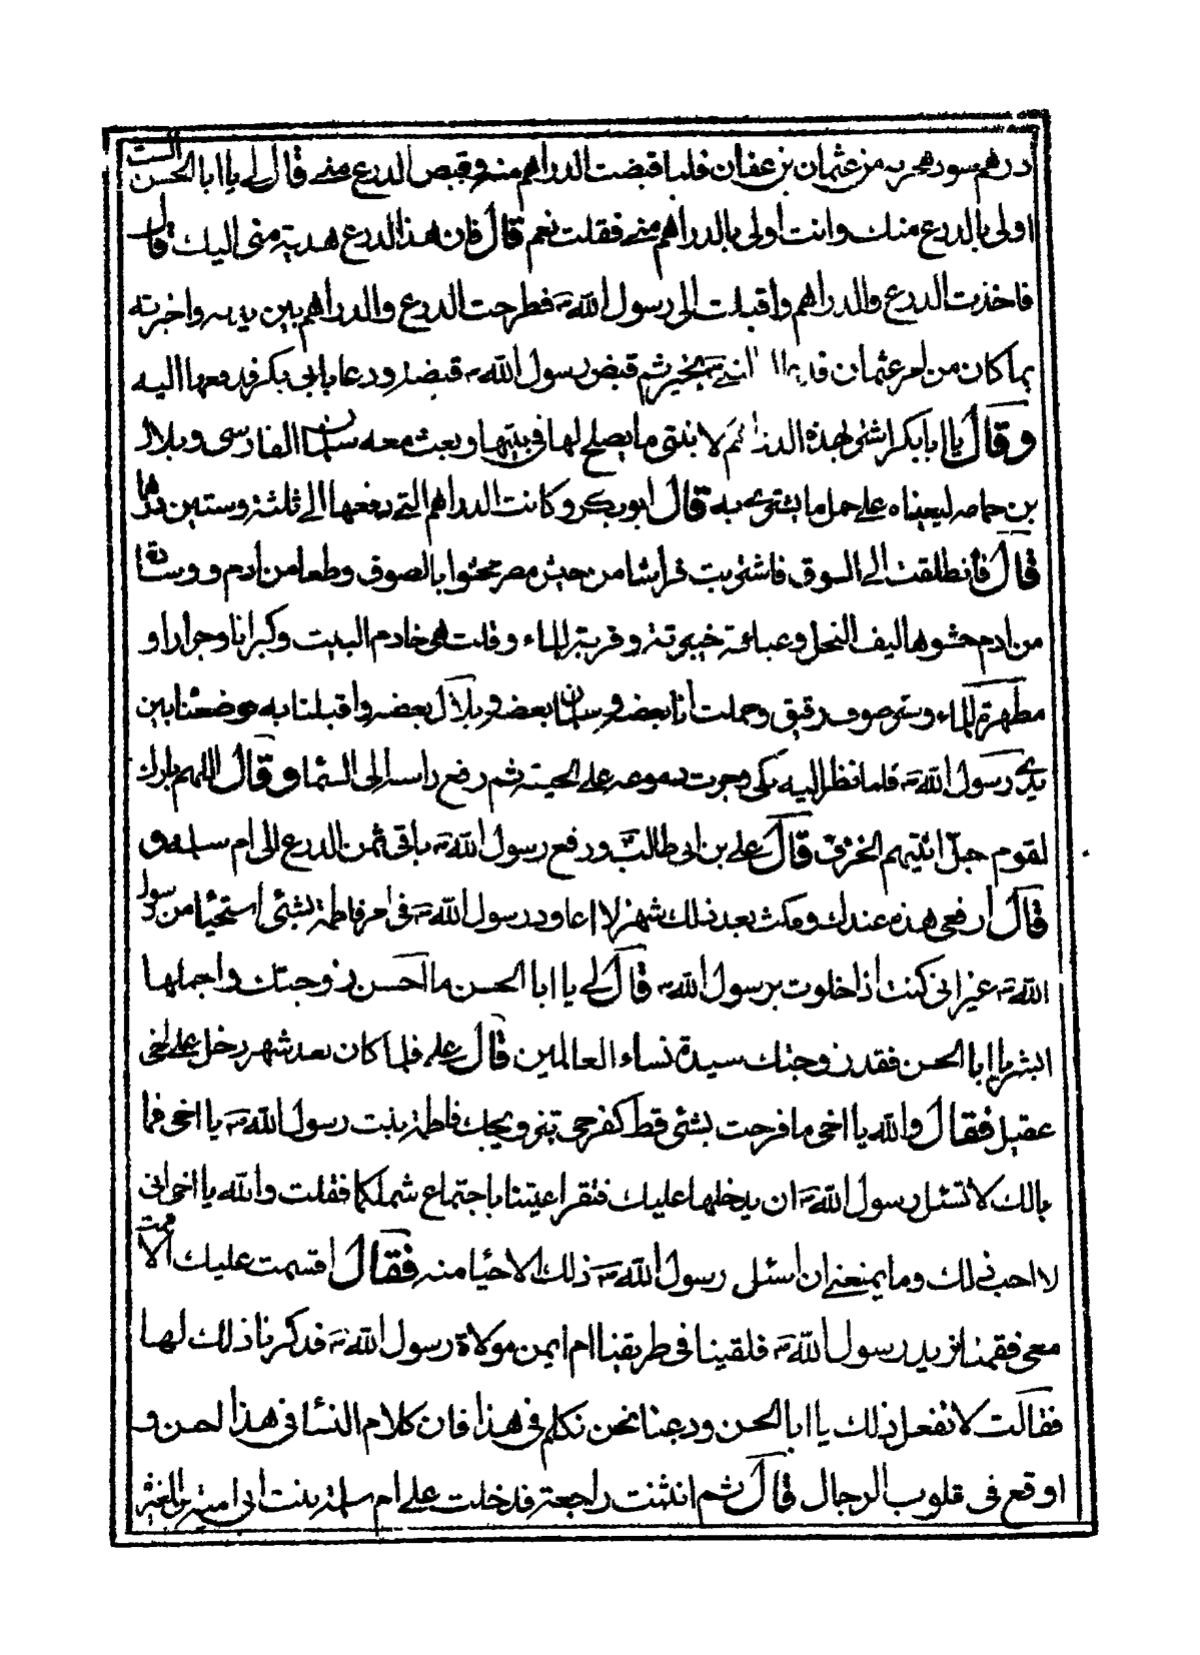 درهم سود هجريه من عثمان بن عفان فلما قبضت الدراهم منه و قبض الدرع منى قال لى يا ابا الحسن الست
اولى بالدرع منك وانت اولى بالدراهم منى فقلت نعم قال فان هذا الدرع هدية منى اليك قال
فاخذت الدرع والدراهم واقبلت الى رسول الله ص فطرحت الدرع والدراهم بين يديه واخبرته
بما كان من امر عثمان بخير ثم قبض رسول الله ص قبضة ودعا بابى بكر فدفعها اليه
وقال يا ابا بكر اشتر بهذه الدراهم لابنتى ما يصلح لها فى بيتها وبعث معه سلمان الفارسى وبلال
بن حمامه ليعيناه على حمل ما يشترى به قال ابو بكر وكانت الدراهم التى دفعها الى ثلثة وستين درهما
قال فانطلقت الى السوق فاشتريت فراشا من خيش مصر محشوا بالصوف ونطعا من ادم ووسادة
من ادم حشوها ليف النخل وعباءة خيبرية وقربة للماء وقلت هى خادم البيت وكيزانا وجرارا و
مطهرة للماء وستر صوف رقيق وحملت انا بعضه وسلمان بعضه وبلال بعضه واقبلنا به فوضعنا بين
يدى رسول الله ص فلما نظر اليه بكى وجرت دموعه على لحيته ثم رفع راسه الى السماء وقال اللهم بارك
لقوم جل انيتهم الخزف قال على بن ابى طالب ورفع رسول الله ص باقى ثمن الدرع الى ام سلمه و
قال ارفعى هذه عندك ومكث بعد ذلك شهرا لا اعاود رسول الله ص فى امر فاطمة بشئ استحياء من رسول
الله ص غير انى كنت اذا خلوت برسول الله ص قال لى يا ابا الحسن ما احسن زوجتك واجملها
ابشر يا ابا الحسن فقد زوجتك سيدة نساء العالمين قال على فلما كان بعد شهر دخل على اخى
عقيل فقال والله يا اخى ما فرحت بشئ قط كفرحى بتزويجك فاطمة بنت رسول الله ص يا اخى فما
بالك لا تسئل رسول الله ص ان يدخلها عليك فتقر اعيننا باجتماع شملكما فقلت والله يا اخى انى
لاحب ذلك وما يمنعنى ان اسئل رسول الله ص ذلك الا حياء منه فقال اقسمت عليك الا قمت
معى فقمنا نريد رسول الله ص فلقينا فى طريقنا ام ايمن مولاة رسول الله ص فذكرنا ذلك لها
فقالت لا تفعل ذلك يا ابا الحسن ودعنا نحن نكلم فى هذا فان كلام النساء فى هذا احسن و
اوقع فى قلوب الرجال قال ثم انثنت راجعة فدخلت على ام سلمة بنت ابى امية بن المغيرة